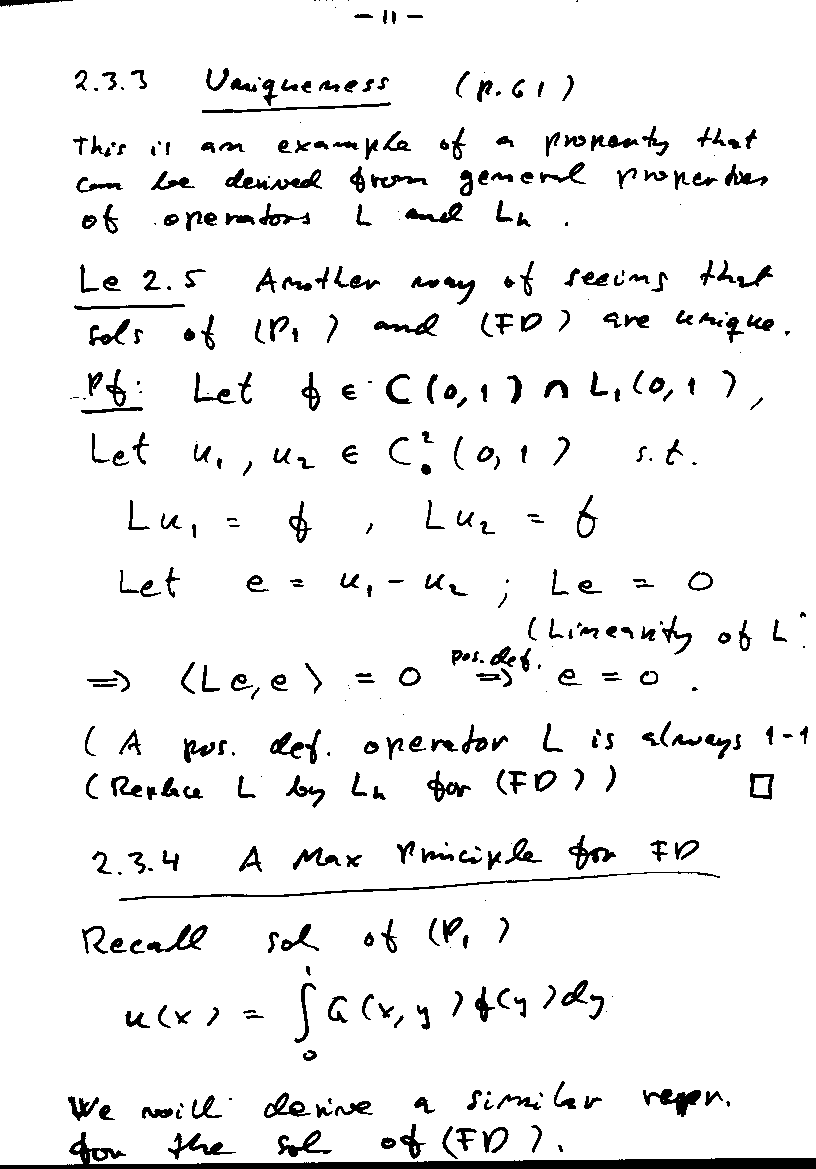 - 11 -
2.3.3 Uniqueness (p.61)
This is an example of a property that
can be derived from general properties
of operators L and Lh .
Le 2.5 Another way of seeing that
sols of (P1) and (FD) are unique.
Pf: Let f ∈ C(0,1) ∩ L1(0,1),
Let u1, u2 ∈ C²₀(0,1) s.t.
Lu1 = f , Lu2 = f
Let e = u1 - u2 ; Le = 0
(Linearity of L)
=> ⟨Le, e⟩ = 0 pos. def. => e = 0 .
(A pos. def. operator L is always 1-1
(Replace L by Lh for (FD)) □
2.3.4 A Max Principle for FD
Recall sol of (P1)
u(x) = ∫₀¹ G(x,y) f(y) dy
We will derive a similar repr.
for the sol of (FD).